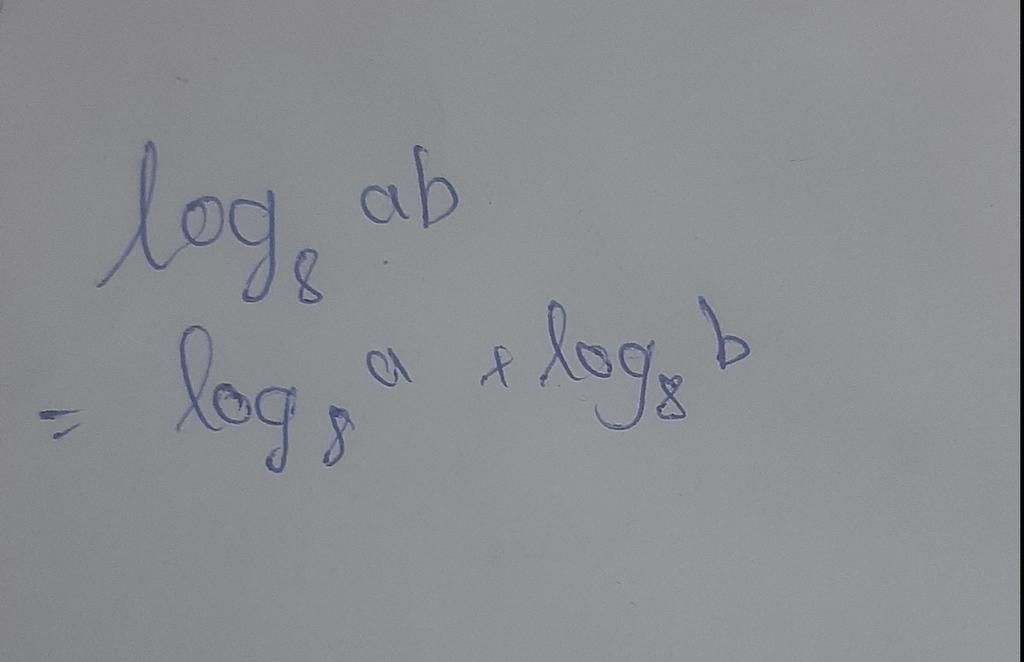 log₈ ab
= log₈ a + log₈ b